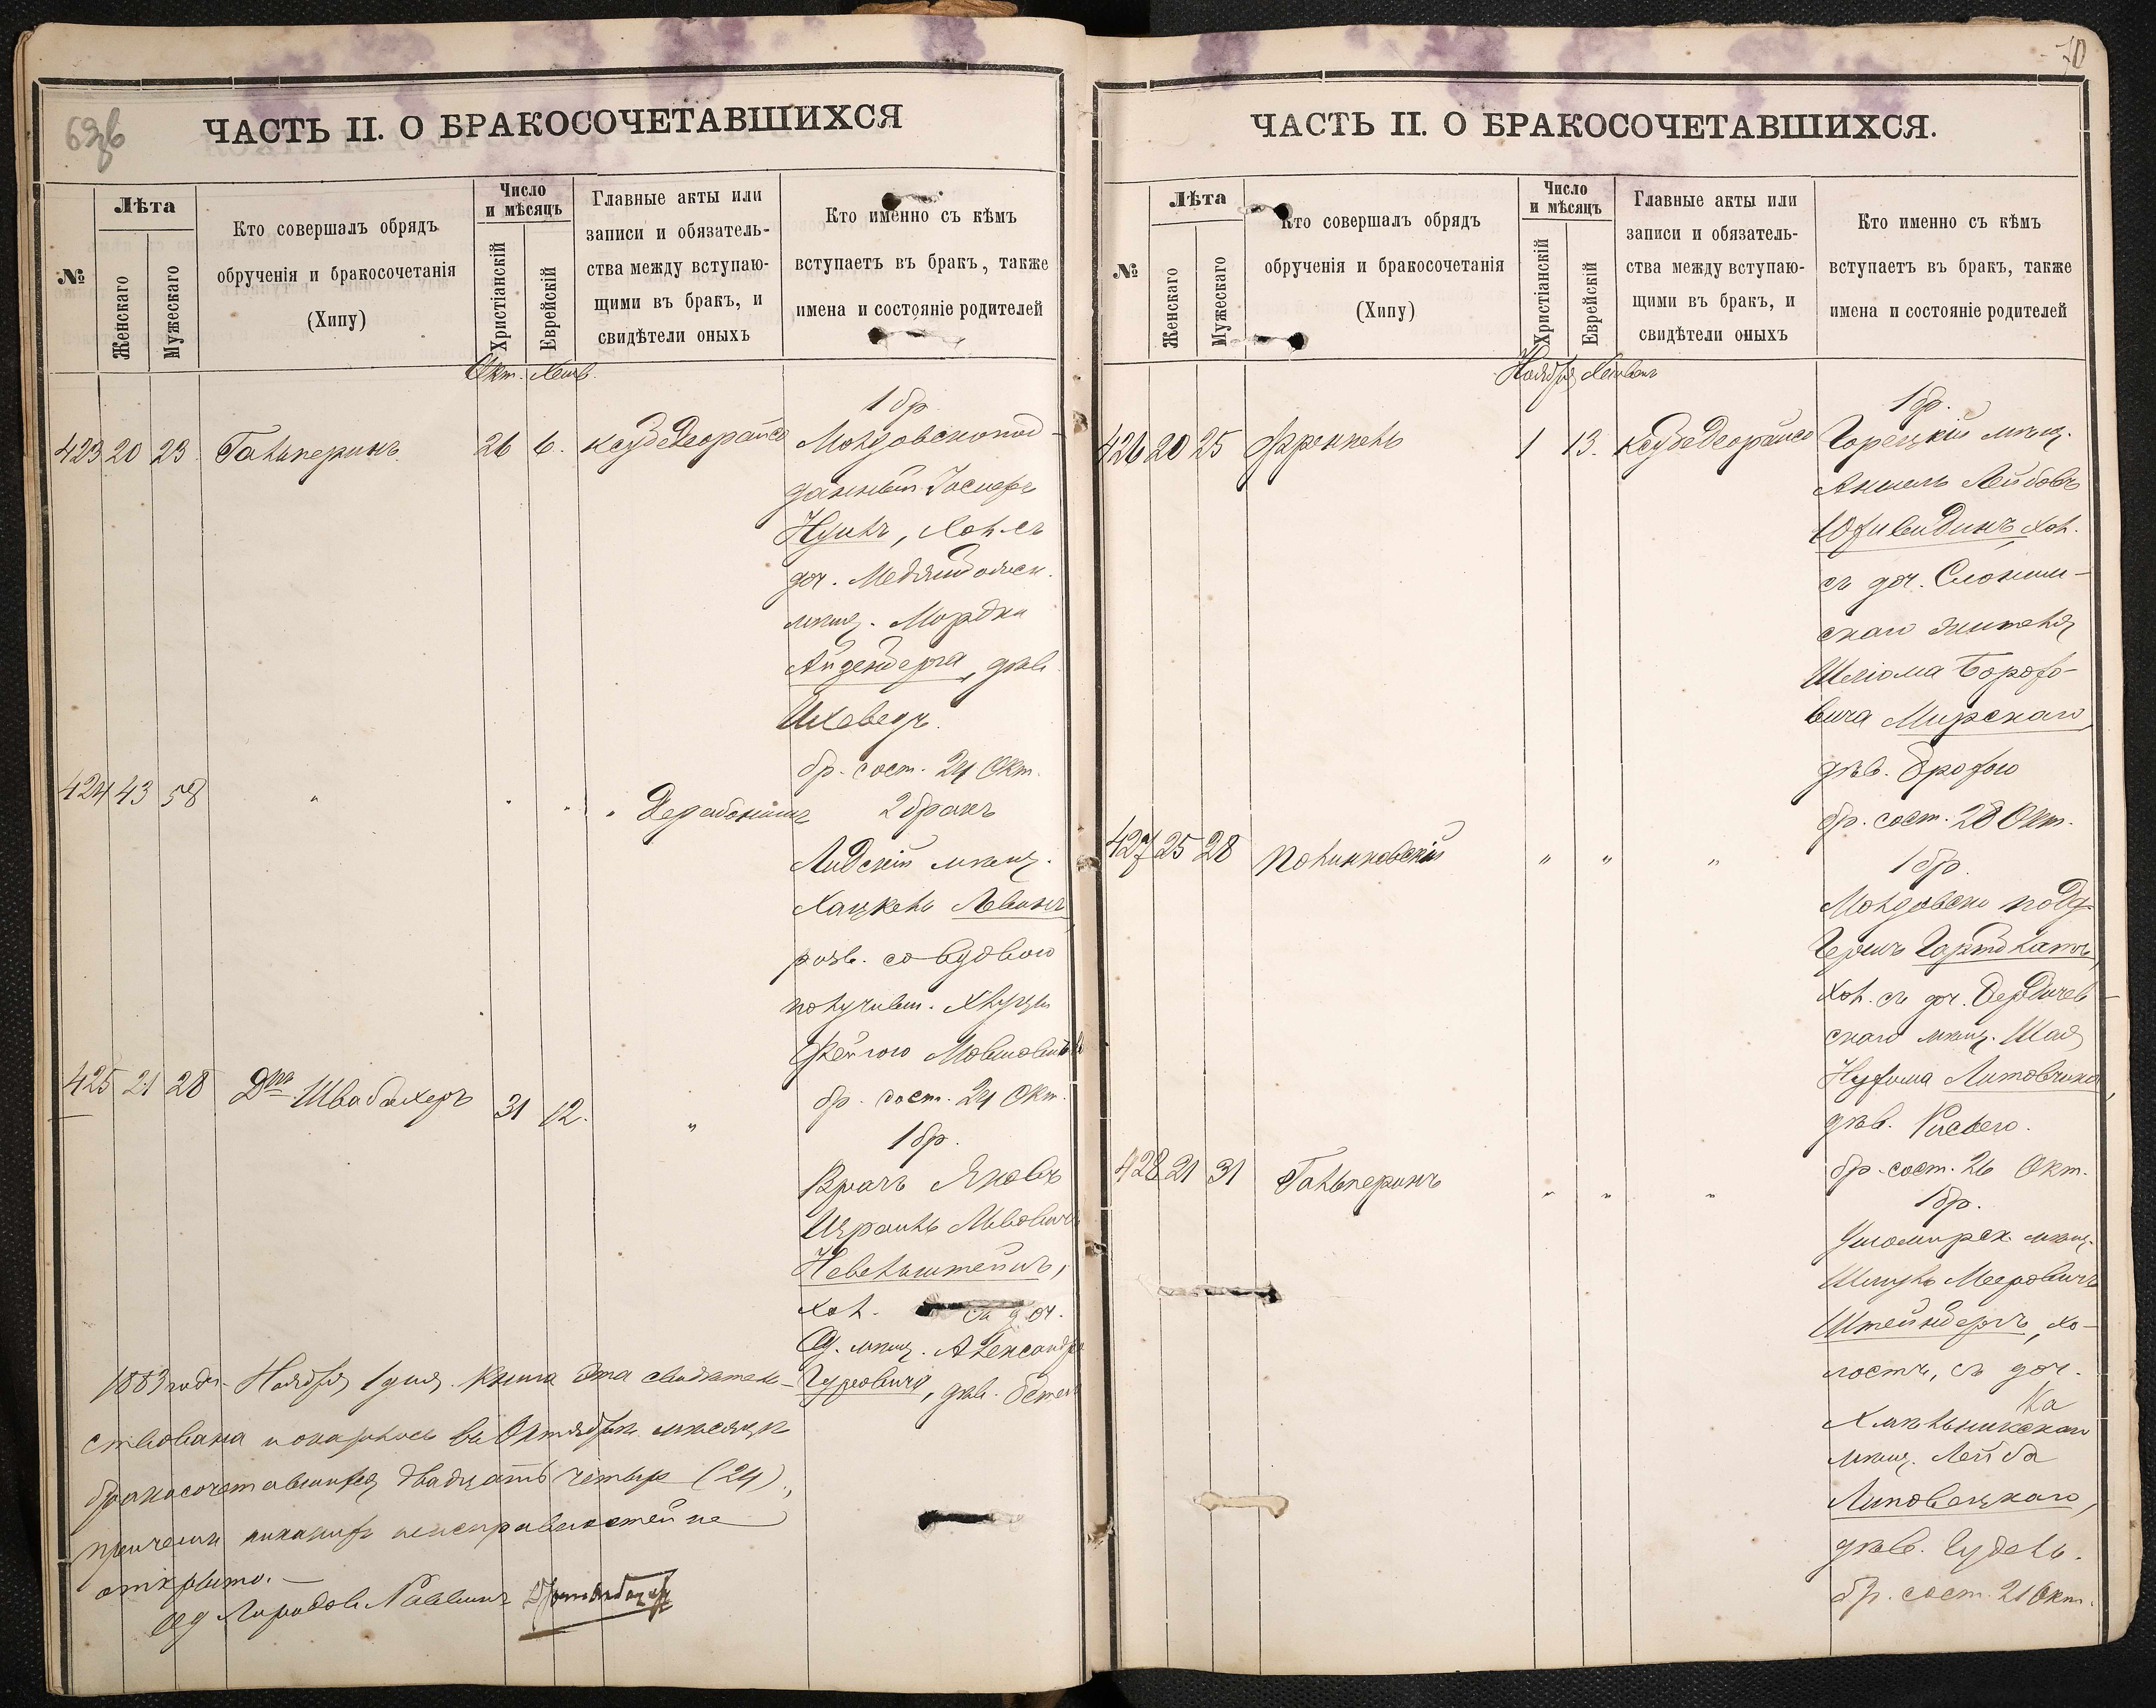 69об
ЧАСТЬ II. О БРАКОСОЧЕТАВШИХСЯ
№
Лѣта
Женскаго
Мужескаго
Кто совершалъ обрядъ
обрученія и бракосочетанія
(Хипу)
Число
и мѣсяцъ
Христіанскій
Еврейскій
Главные акты или
записи и обязатель-
ства между вступаю-
щими въ бракъ, и
свидѣтели оныхъ
Кто именно съ кѣмъ
вступаетъ въ бракъ, также
имена и состояніе родителей
Окт. Хешв.
1 бр.
423 20 23 Гальперинъ 26 6. Молдовскопод-
данный Іосифъ
хол. съ
доч.
мѣщ. Мордки
Айзенберга, дѣв.
Ихеведъ.
бр. сост. 24 Окт.
424 43 58 " " " "
2 бракъ
Лидскій мѣщ.
Хацкель Левинъ,
разв. со вдовою
получивш. Хлуцы
Фейгою
бр. сост. 24 Окт.
425 21 28 Д-ръ Швабахеръ 31 12. "
1 бр.
Врачъ Яковъ
Израиль Львовичъ
Невельштейнъ,
хол. съ доч.
Од. мѣщ. Александра
Гуровича, дѣв.
1883 года Ноября 1 дня. Книга эта свидѣтель-
ствована и оказалось въ Октябрѣ мѣсяцѣ
бракосочетавшихся двадцать четыре (24),
причемъ никакихъ неисправностей не
открыто. —
Од. Городов. Раввинъ
70
ЧАСТЬ II. О БРАКОСОЧЕТАВШИХСЯ.
№
Лѣта
Женскаго
Мужескаго
Кто совершалъ обрядъ
обрученія и бракосочетанія
(Хипу)
Число
и мѣсяцъ
Христіанскій
Еврейскій
Главные акты или
записи и обязатель-
ства между вступаю-
щими въ бракъ, и
свидѣтели оныхъ
Кто именно съ кѣмъ
вступаетъ въ бракъ, также
имена и состояніе родителей
Ноября Хешванъ
1 бр.
426 20 25 Френкель 1 13. Горецкій мѣщ.
Аншель Лейбовъ
хол.
съ доч. Слоним-
скаго жителя
Шліома Борохо-
вича Мирскаго,
дѣв. Брохою
бр. сост. 28 Окт.
427 25 28 Полинковскій " " "
1 бр.
Молдавско подд.
Гершъ
хол. съ доч. Бердичев-
скаго мѣщ. Шая
Нухима Литовчика,
дѣв. Ривою.
бр. сост. 26 Окт.
428 21 31 Гальперинъ " " "
1 бр.
Ушомирск. мѣщ.
Шмуль Мееровичъ
Штейнбергъ, хо-
лостъ, съ доч.
Хмѣльникскаго
мѣщ. Лейба
Липовецкаго,
дѣв. Гудель.
бр. сост. 21 Окт.